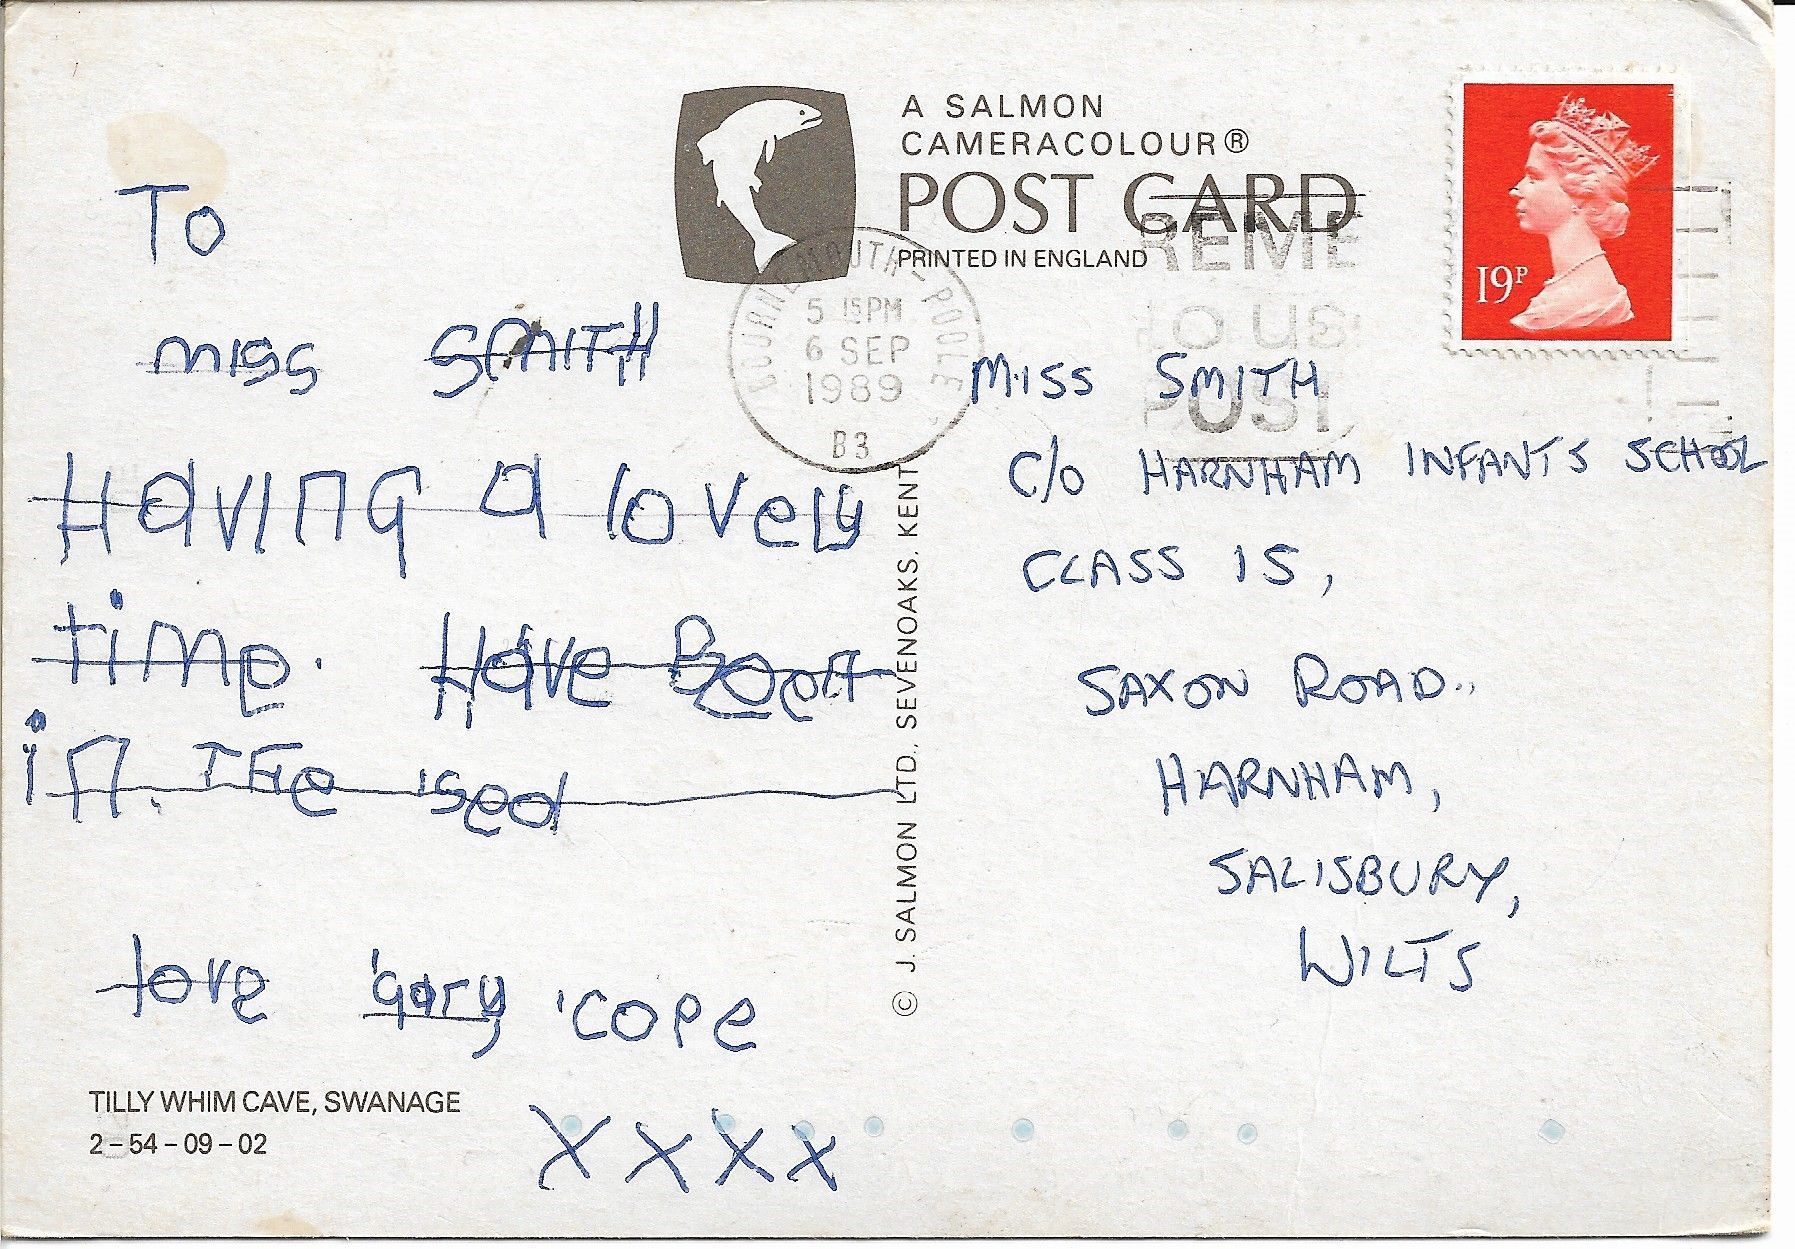 A SALMON
CAMERACOLOUR®
POST CARD
PRINTED IN ENGLAND
19P
BOURNEMOUTH-POOLE
5 15PM
6 SEP
1989
B3
REME
TO USE
POST
To
miss SMITH
Having a lovely
time. Have Been
in. THe sea
love gary cope
XXXX
TILLY WHIM CAVE, SWANAGE
2-54-09-02
© J. SALMON LTD., SEVENOAKS. KENT
MISS SMITH
C/O HARNHAM INFANTS SCHOOL
CLASS 15,
SAXON ROAD..
HARNHAM,
SALISBURY,
WILTS